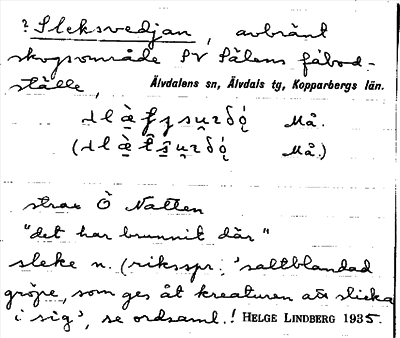 ? Sleksvedjan, avbränt
skogsområde SV Sälens fäbod-
ställe,
Älvdalens sn, Älvdals tg, Kopparbergs län.
Må.
Må.)
strax Ö Natten
"det har brunnit där"
sleke n. (riksspr. 'saltblandad
gröpe, som ges åt kreaturen att slicka
i sig', se ordsaml.! HELGE LINDBERG 1935.